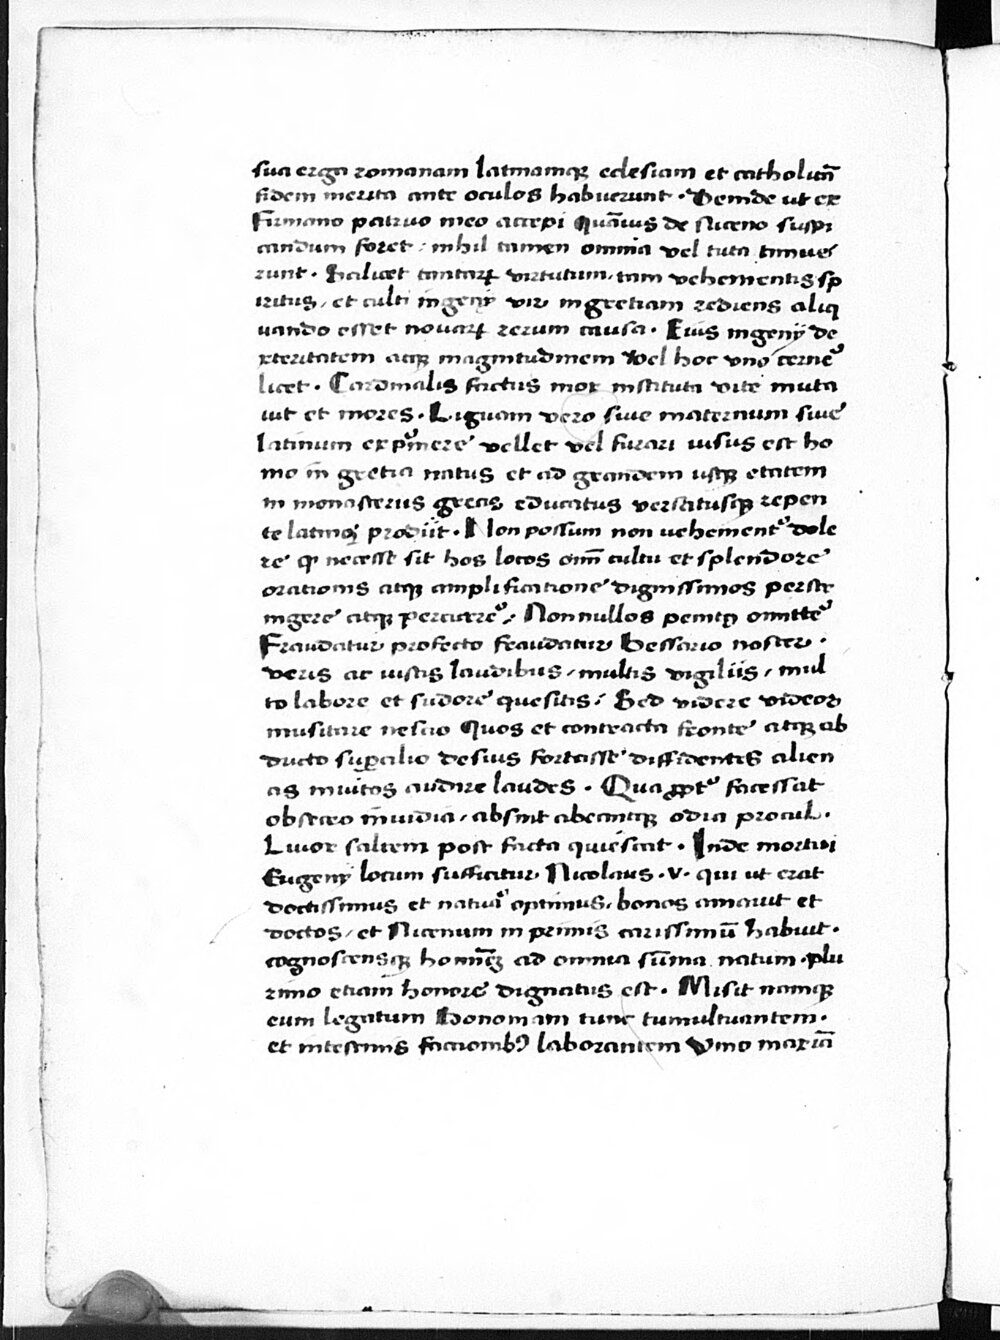 sua erga romanam latinamqꝫ eclesiam et catholicā
fidem merita ante oculos habuerunt · Deinde ut ex
Firmano patruo meo accepi Quāuis de Niceno suspi
candum foret : nihil tamen omnia vel tuta timue
runt · Scilicet tantarꝝ virtutum, tam vehementis sp
iritus, et culti ingenij vir in gretiam rediens aliq
uando esset nouarꝝ rerum causa · Eius ingenij de
xteritatem atqꝫ magnitudinem Vel hoc vno cerne᷑
licet · Cardinalis factus mox instituta vite muta
uit et mores · Liguam vero siue maternum siue
latinum exp̓mere vellet vel furari uisus est ho
mo in gretia natus et ad grandem usqꝫ etatem
in monasteriis grecis educatus versitusiqꝫ repen
te latinoꝝ prodiit · Non possum non uehement᷑ dole
re ꝙ necesse sit hos locos om̄i cultu et splendore
orationis atqꝫ amplificatione dignissimos perstr
ingere atqꝫ percurrere᷑ ; Nonnullos penitꝰ omitte᷑
Fraudatur profecto fraudatur Bessario noster ·
veris ac iustis laudibus, multis vigiliis, mul
to labore et sudore quesitis ; Sed videre videor
musitare nescio Quos et contracta fronte atqꝫ ab
ducto suꝑcilio desius fortasse diffidentes alien
as inuitos audire laudes · Quaꝓpt᷑ facessat
obsecro inuidia, absint abeantqꝫ odia procul ·
Liuor saltem post facta quiescat · Inde mortui
Eugenij locum sufficitur Nicolaus · V · qui ut erat
doctissimus et natura optimus, bonos amauit et
doctos, et Nicenum in primis carissimū habuit ·
cognoscensqꝫ hominēꝫ ad omnia sūma natum · plu
rimo etiam honore dignatus est · Misit namqꝫ
eum legatum Bononiam tunc tumultuantem ·
et intestinis factionibꝰ laborantem Vino maxiā